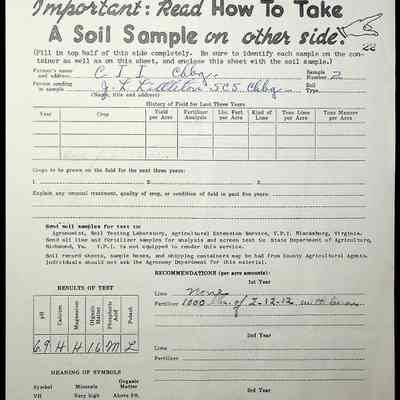 Important: Read How To Take
A Soil Sample on other side.
(Fill in top half of this side completely. Be sure to identify each sample on the con-
tainer as well as on this sheet, and enclose this sheet with the soil sample.)
Farmer's name and address. C I I Chbg. Sample Number 2
Person sending in sample J. L. Littleton SCS Chbg. Soil Type
(Name, title and address)
History of Field for Last Three Years
Year Crop Yield per Acre Fertilizer Analysis Lbs. Fert. per Acre Kind of Lime Tons Lime per Acre Tons Manure per Acre
Crops to be grown on the field for the next three years:
1. 2. 3.
Explain any unusual treatment, quality of crop, or condition of field in past five years:
Send soil samples for test to:
Agronomist, Soil Testing Laboratory, Agricultural Extension Service, V.P.I. Blacksburg, Virginia.
Send all lime and fertilizer samples for analysis and screen test to: State Department of Agriculture,
Richmond, Va. V.P.I. is not equipped to render this service.
Soil record sheets, sample boxes, and shipping containers may be had from County Agricultural Agents.
Individuals should not ask the Agronomy Department for this material.
RECOMMENDATIONS (per acre amounts):
1st Year
RESULTS OF TEST
Lime None
Fertilizer 1000 lbs. of 2-12-12 with
pH Calcium Magnesium Organic Matter Phosphoric Acid Potash
2nd Year
Lime
6.9 H H 1.6 M L
Fertilizer
MEANING OF SYMBOLS
Symbol Minerals Organic Matter
3rd Year
VH Very high Above 5%